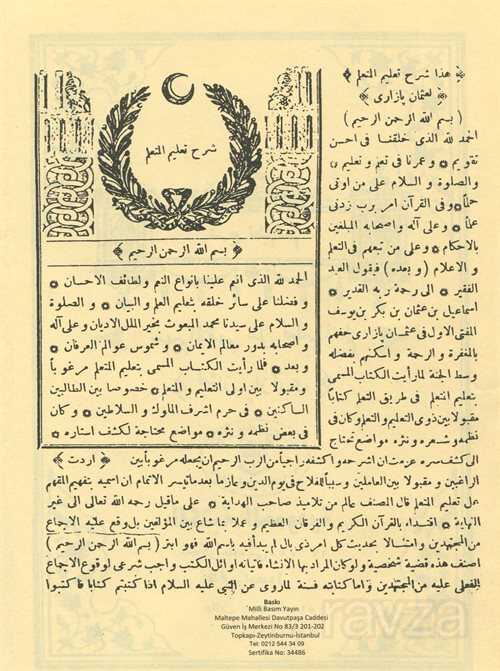 ﴿ هذا شرح تعليم المتعلم ﴾
﴿ لعثمان پازاری ﴾
( بسم الله الرحمن الرحيم )
الحمد لله الذى خلقنا فى احسن
تقويم ۞ وعمرنا فى تعلم و تعليم ۞
والصلوة و السلام على من اوتى
۞ وفى القرآن امر برب زدنى
علما ۞ وعلى آله واصحابه المبلغين
بالاحكام ۞ وعلى من تبعهم فى التعلم
و الاعلام ( و بعده ) فيقول العبد
الفقير ۞ الى رحمة ربه القدير ۞
اسماعيل بن عثمان بن بكر بن يوسف
المفتى الاول فى عثمان پازارى حفهم
بالمغفرة و الرحمة و اسكنهم بفضله
وسط الجنة لما رأيت الكتاب المسمى
بتعليم المتعلم فى طريق التعلم كتابا
مقبولا بين ذوى التعليم والتعلم وكان فى
نظمه وشعره ونثره مواضع تحتاج
شرح تعليم المتعلم
﴿ بسم الله الرحمن الرحيم ﴾
الحمد لله الذى انعم علينا بانواع النعم ولطائف الاحسان ۞
و فضلنا على سائر خلقه بتعليم العلم و البيان ۞ و الصلوة
و السلام على سيدنا محمد المبعوث بخير الملل والاديان وعلى آله
و اصحابه بدور معالم الايمان ۞ وشموس عوالم العرفان ۞
و بعد ۞ فلما رأيت الكتاب المسمى بتعليم المتعلم مرغوبا
ومقبولا بين اولى التعليم و المتعلم ۞ خصوصا بين الطالبين
الساكنين ۞ فى حرم اشرف الملوك و السلاطين ۞ وكان
فى بعض نظمه و نثره ۞ مواضع محتاجة لكشف استاره ۞
الى كشف سره عزمت ان اشرحه واكشفه راجيا من الرب الرحيم ان يجعله مرغوبا بين ( اردت )
الراغبين و مقبولا بين العاملين وسببا للفلاح فى يوم الدين وعازما بعد ما تيسر الاتمام ان اسميه بتفهيم المتفهم
على تعليم المتعلم قال المصنف عالم من تلاميذ صاحب الهداية ۞ على ماقيل رحمه الله تعالى الى غير
النهاية ۞ اقتداء بالقرآن الكريم والفرقان العظيم وعملا بما شاع بين المؤلفين بل وقع عليه الاجماع
من المجتهدين وامتثالا بحديث كل امر ذى بال لم يبدأ فيه باسم الله فهو ابتر ( بسم الله الرحمن الرحيم )
اصنف هذه قضية شخصية ولو كان المراد بها الانشاء فاتيانه اوائل الكتب واجب شرعى لوقوع الاجماع
الفعلى عليه من المجتهدين واما كتابته فسنة لما روى عن النبى عليه السلام اذا كتبتم كتابا فاكتبوا
Baskı
Milli Basım Yayın
Maltepe Mahallesi Davutpaşa Caddesi
Güven İş Merkezi No 83/3 201-202
Topkapı-Zeytinburnu-İstanbul
Tel: 0212 544 34 09
Sertifika No: 34486
ravza